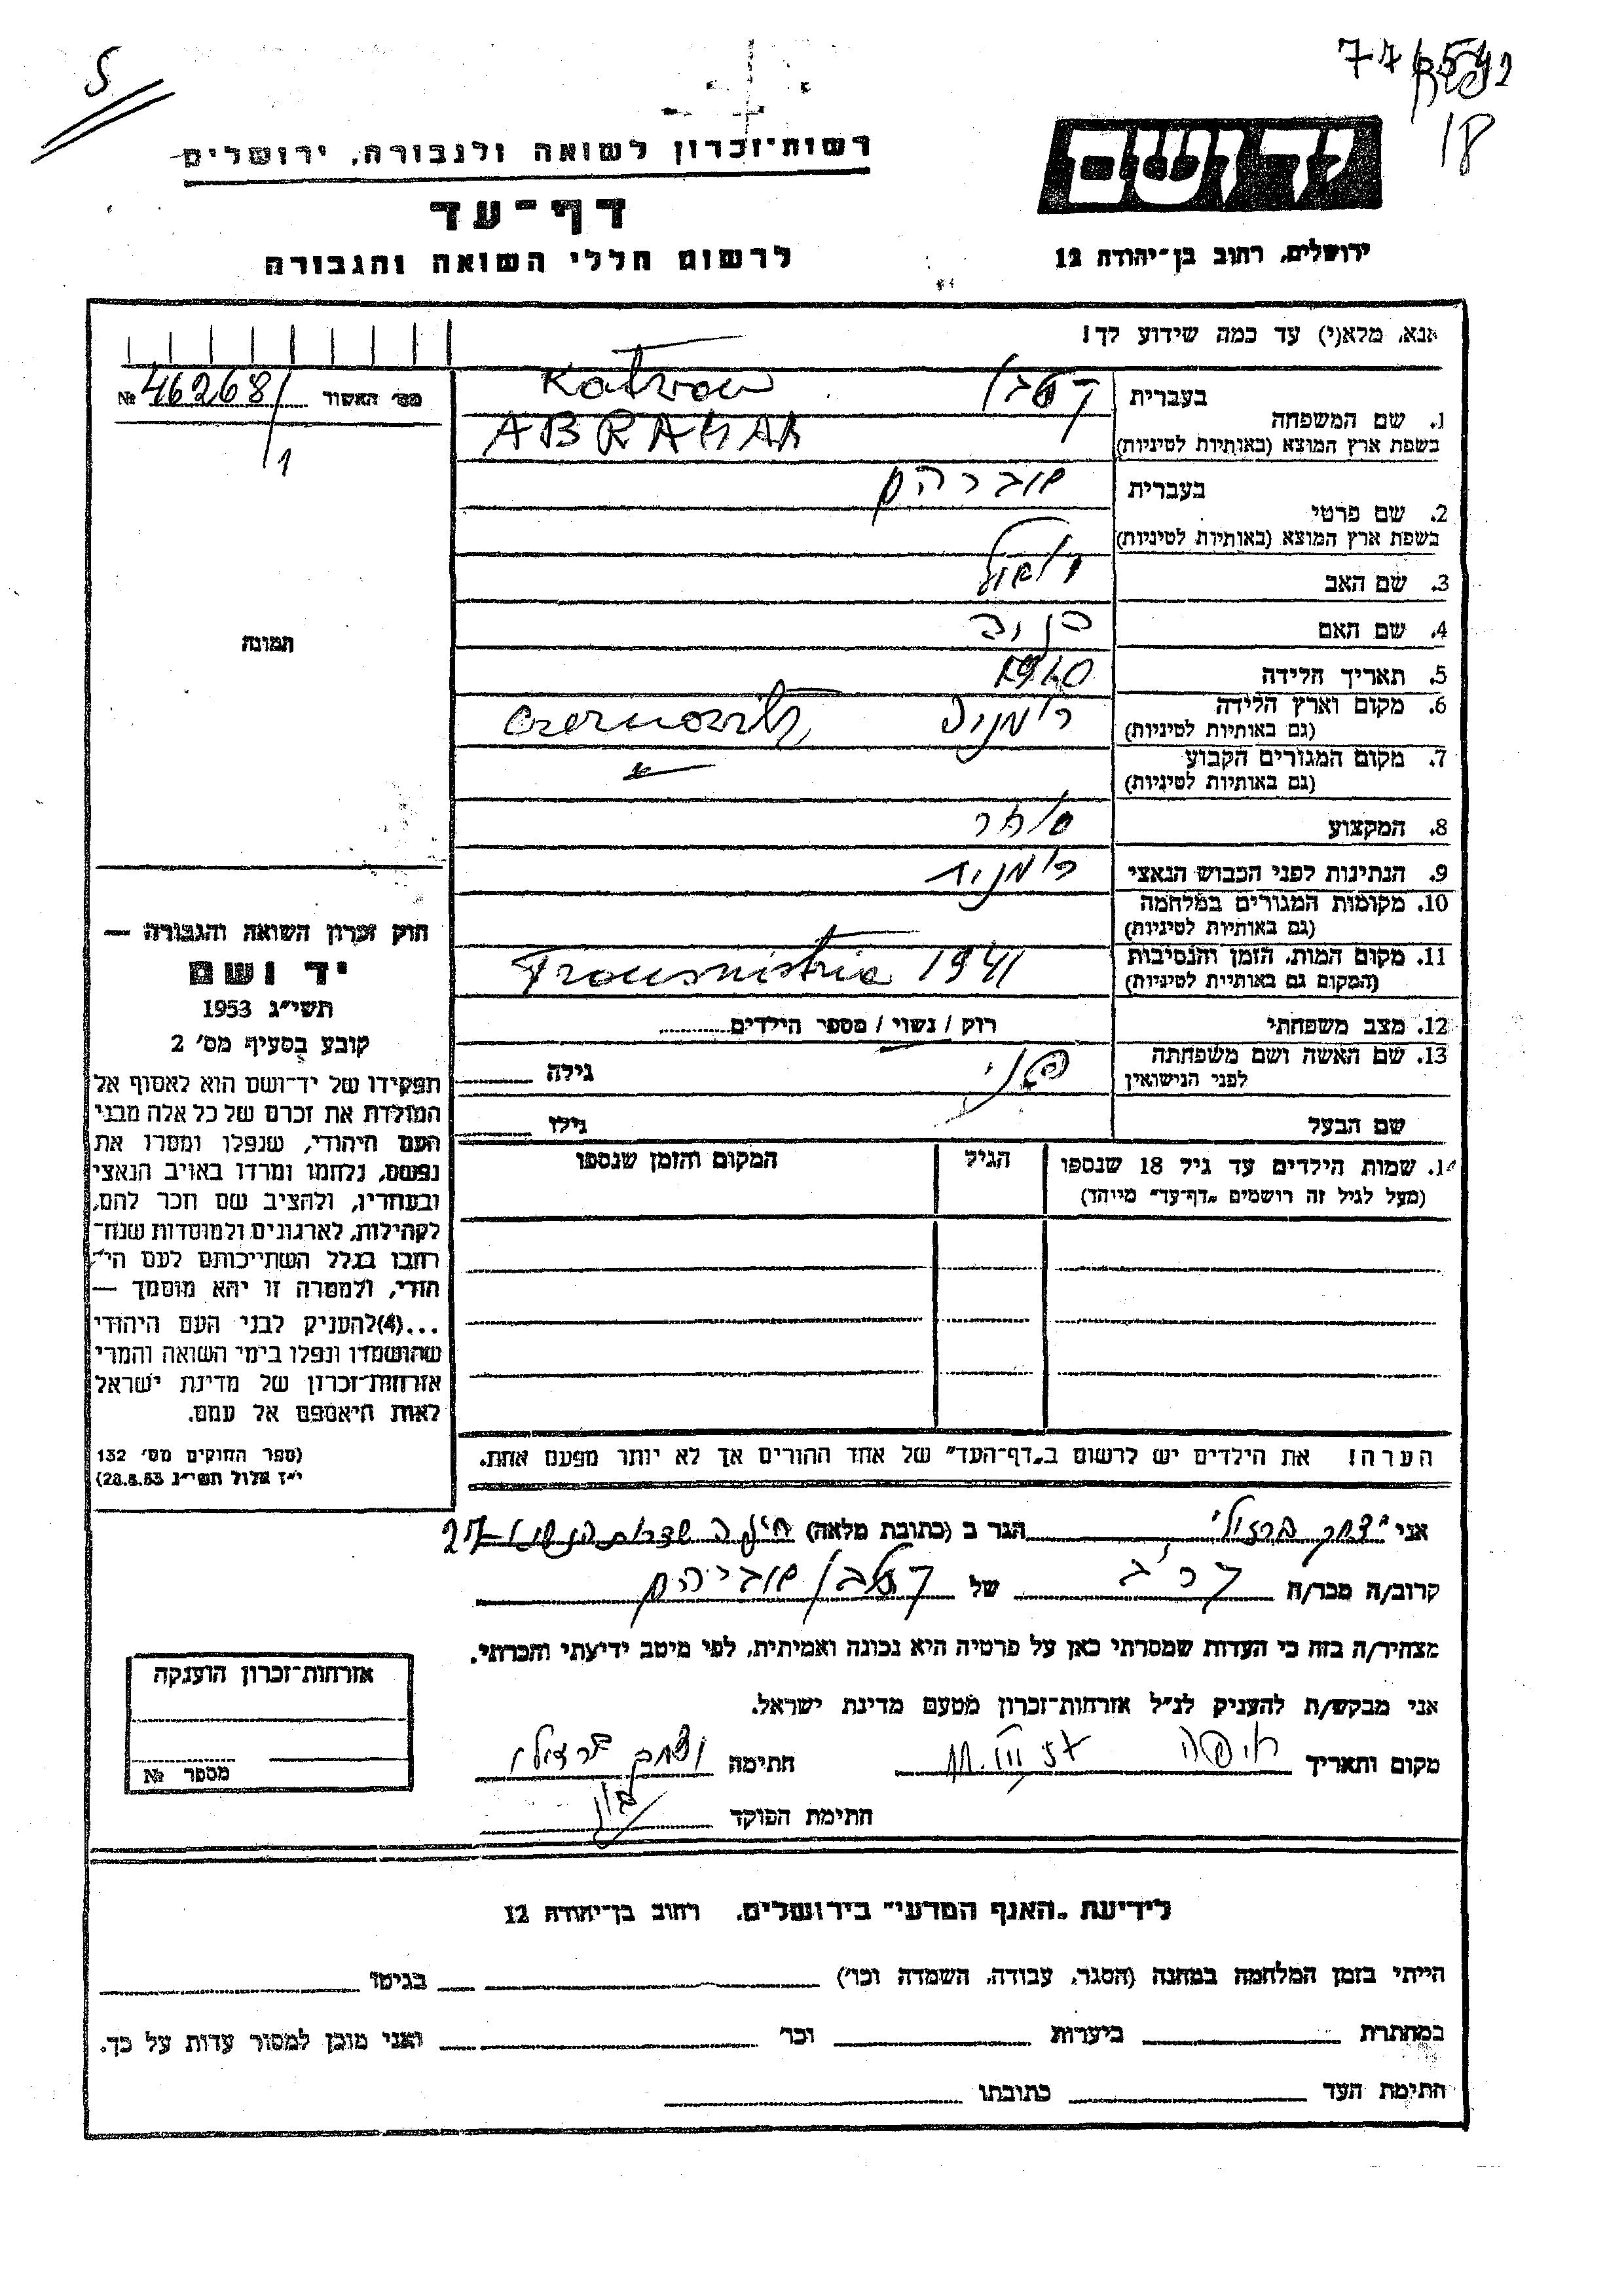 18
5
יד ושם
רשות־זכרון לשואה ולגבורה, ירושלים
דף־עד
לרשום חללי השואה והגבורה
ירושלים, רחוב בן־יהודה 12
אנא, מלא(י) עד כמה שידוע לך!
מס׳ האשור № 46268/1
1. שם המשפחה
בעברית
Katzvan
בשפת ארץ המוצא (באותיות לטיניות)
ABRAHAM
2. שם פרטי
בעברית
אברהם
בשפת ארץ המוצא (באותיות לטיניות)
3. שם האב
4. שם האם
5. תאריך הלידה
6. מקום וארץ הלידה
(גם באותיות לטיניות)
רומניה Czernovitz
7. מקום המגורים הקבוע
(גם באותיות לטיניות)
8. המקצוע סוחר
9. הנתינות לפני הכבוש הנאצי רומנית
10. מקומות המגורים במלחמה
(גם באותיות לטיניות)
11. מקום המות, הזמן והנסיבות
(המקום גם באותיות לטיניות)
Transnistria 1941
12. מצב משפחתי רוק / נשוי / מספר הילדים
13. שם האשה ושם משפחתה
לפני הנישואין
גילה
שם הבעל גילו
14. שמות הילדים עד גיל 18 שנספו הגיל המקום והזמן שנספו
(מעל לגיל זה רושמים „דף־עד״ מיוחד)
הערה! את הילדים יש לרשום ב„דף־העד״ של אחד ההורים אך לא יותר מפעם אחת.
תמונה
חוק זכרון השואה והגבורה —
יד ושם
תשי״ג 1953
קובע בסעיף מס׳ 2
תפקידו של יד־ושם הוא לאסוף אל
המולדת את זכרם של כל אלה מבני
העם היהודי, שנפלו ומסרו את
נפשם, נלחמו ומרדו באויב הנאצי
ובעוזריו, ולהציב שם וזכר להם,
לקהילות, לארגונים ולמוסדות שנח־
רבו בגלל השתייכותם לעם הי־
הודי, ולמטרה זו יהא מוסמך —
...(4)להעניק לבני העם היהודי
שהושמדו ונפלו בימי השואה והמרי
אזרחות־זכרון של מדינת ישראל
לאות היאספם אל עמם.
(ספר החוקים מס׳ 132
י״ז אלול תשי״ג 28.8.53)
אני יצחק ברזילי הגר ב (כתובת מלאה) חיפה שדרות הנשיא 27
קרוב/ה מכר/ה קרוב של אברהם
מצהיר/ה בזה כי העדות שמסרתי כאן על פרטיה היא נכונה ואמיתית, לפי מיטב ידיעתי והכרתי.
אני מבקש/ת להעניק לנ״ל אזרחות־זכרון מטעם מדינת ישראל.
מקום ותאריך חיפה חתימה יצחק ברזילי
חתימת הפוקד
אזרחות־זכרון הוענקה
מספר №
לידיעת „האגף המדעי״ בירושלים, רחוב בן־יהודה 12
הייתי בזמן המלחמה במחנה (הסגר, עבודה, השמדה וכו׳) בגיטו
במחתרת ביערות וכו׳ ואני מוכן למסור עדות על כך.
חתימת העד כתובתו